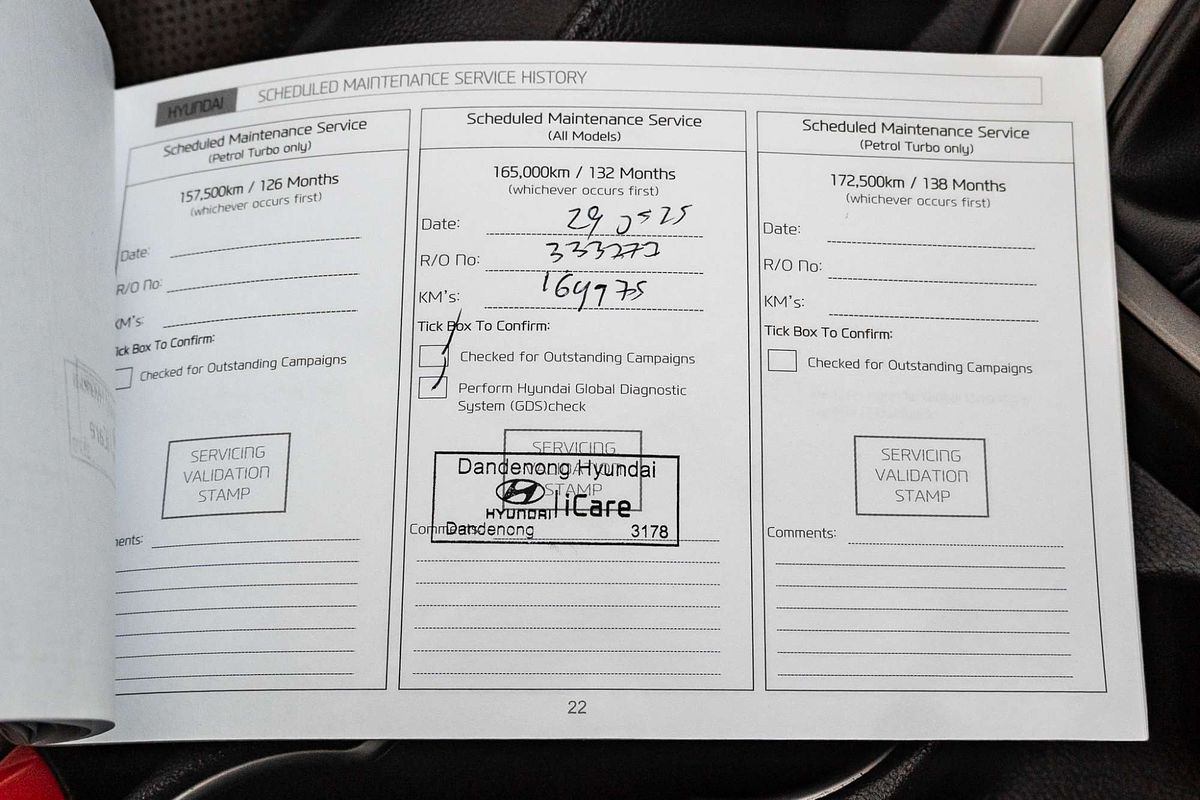 HYUNDAI SCHEDULED MAINTENANCE SERVICE HISTORY
Scheduled Maintenance Service
(Petrol Turbo only)
157,500km / 126 Months
(whichever occurs first)
Date:
R/O No:
KM's:
ick Box To Confirm:
Checked for Outstanding Campaigns
SERVICING
VALIDATION
STAMP
ments:
Scheduled Maintenance Service
(All Models)
165,000km / 132 Months
(whichever occurs first)
Date: 29 05 25
R/O No:
KM's: 164975
Tick Box To Confirm:
Checked for Outstanding Campaigns
Perform Hyundai Global Diagnostic
System (GDS)check
SERVICING
VALIDATION
STAMP
Dandenong Hyundai
HYUNDAI iCare
Dandenong 3178
Comments:
Scheduled Maintenance Service
(Petrol Turbo only)
172,500km / 138 Months
(whichever occurs first)
Date:
R/O No:
KM's:
Tick Box To Confirm:
Checked for Outstanding Campaigns
SERVICING
VALIDATION
STAMP
Comments:
22